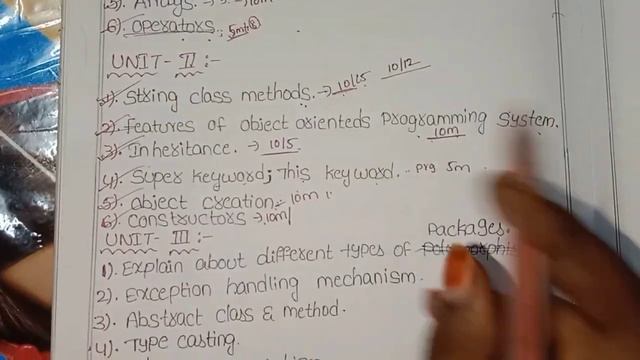 5). Arrays.
6). Operators. 5m
UNIT- II :-
1). String class methods. → 10/05 10/12
2). features of object orienteds programming system. 10m
3). Inheritance. → 10/5
4). Super keyword; This keyword. prg 5m
5). object creation 10m
6). constructors → 10m
UNIT- III :-
1). Explain about different types of Packages.
2). Exception handling mechanism.
3). Abstract class & method.
4). Type casting.